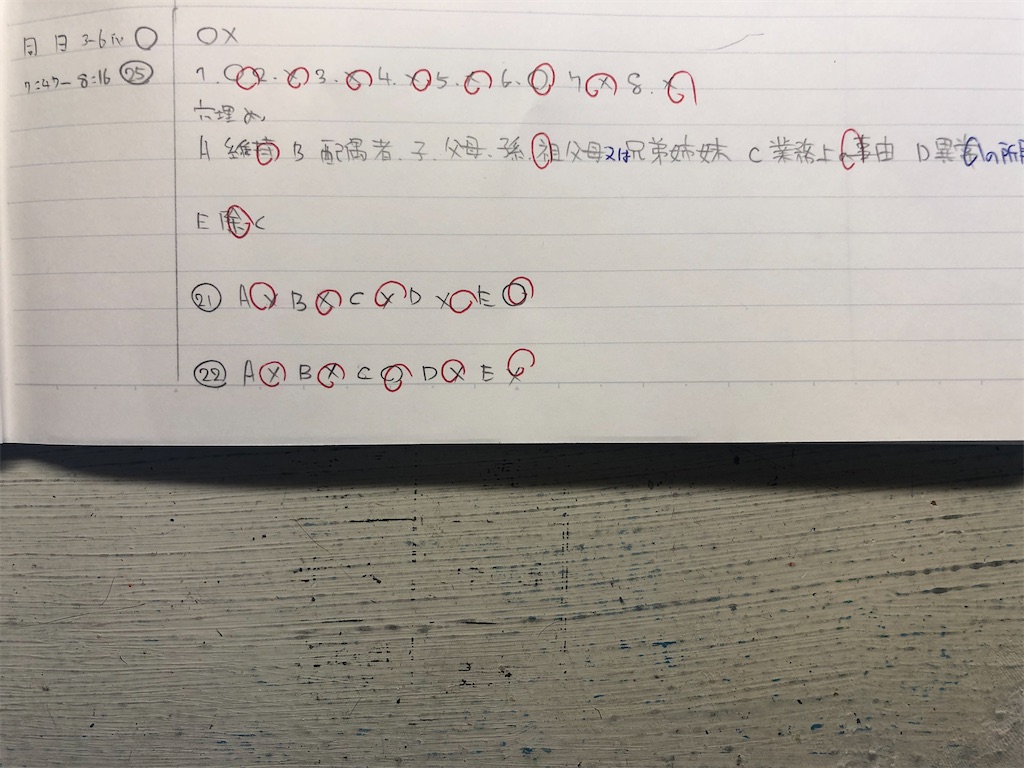 同日 3-6 iv ○
○×
7:47-8:16 ㉕
1. ○ 2. × 3. × 4. × 5. × 6. ○ 7 × 8. ×
穴埋め
A 維持 B 配偶者、子、父母、孫、祖父母又は兄弟姉妹 C 業務上の事由 D 異常の所見
E 除く
㉑ A × B × C × D × E ○
㉒ A × B × C ○ D × E ×